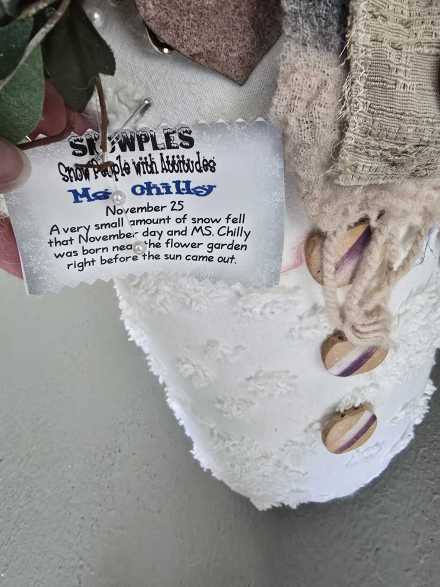 SNOWPLES
SnowPeople with Attitudes
Ms Chilly
November 25
A very small amount of snow fell
that November day and MS. Chilly
was born near the flower garden
right before the sun came out.